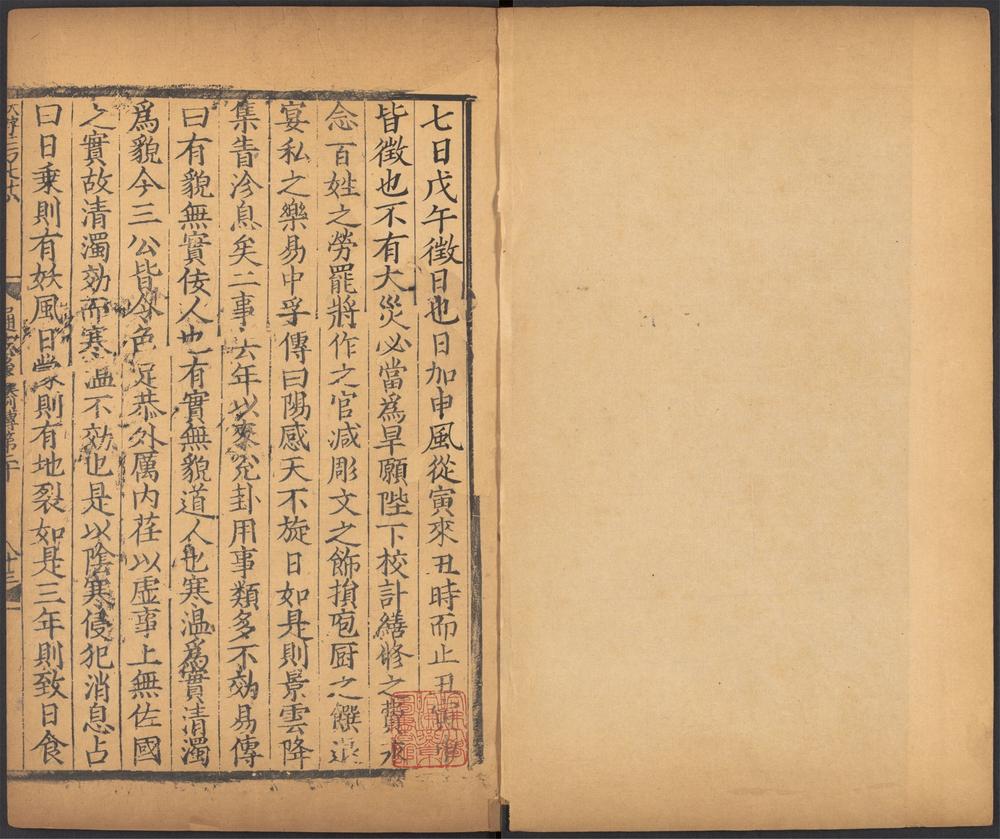 七日戊午徵日也日加申風從寅來丑時而止丑
皆徵也不有大災必當爲旱願陛下校計繕修之費永
念百姓之勞罷將作之官減彫文之飾損庖厨之饌退
宴私之樂易中孚傳曰陽感天不旋日如是則景雲降
集眚沴息矣二事六年以來兊卦用事類多不効易傳
曰有貌無實佞人也有實無貌道人也寒温爲實清濁
爲貌今三公皆令色足恭外厲内荏以虛事上無佐國
之實故清濁効而寒温不効也是以陰寒侵犯消息占
曰日乗則有妖風日蒙則有地裂如是三年則致日食
傳第二十